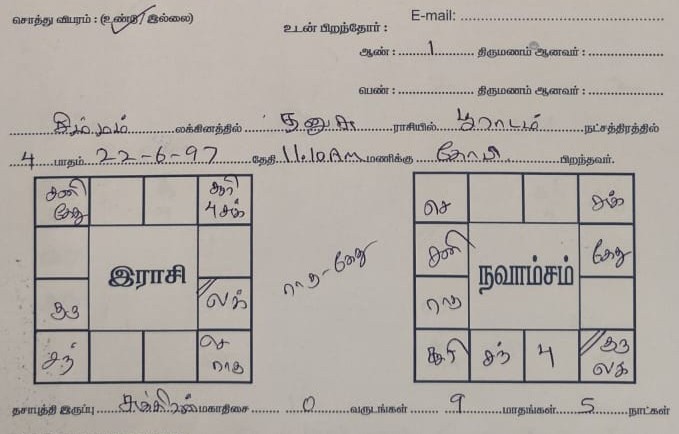 சொத்து விபரம் : (உண்டு / இல்லை)
E-mail:
உடன் பிறந்தோர் :
ஆண் : 1 திருமணம் ஆனவர் :
பெண் : திருமணம் ஆனவர் :
சிம்மம் லக்கினத்தில் தனுசு ராசியில் பூராடம் நட்சத்திரத்தில்
4 பாதம் 22-6-97 தேதி 11.10 AM மணிக்கு கோபி பிறந்தவர்.
சனி கேது
சூரி 4 சுக்
இராசி
குரு
லக்
சந்
செ ராகு
ராகு-கேது
செ
சுக்
சனி
நவாம்சம்
கேது
ராகு
சூரி சந் 4 குரு லக்
தசாபுத்தி இருப்பு சுக்கிரன் மகாதிசை 0 வருடங்கள் 9 மாதங்கள் 5 நாட்கள்